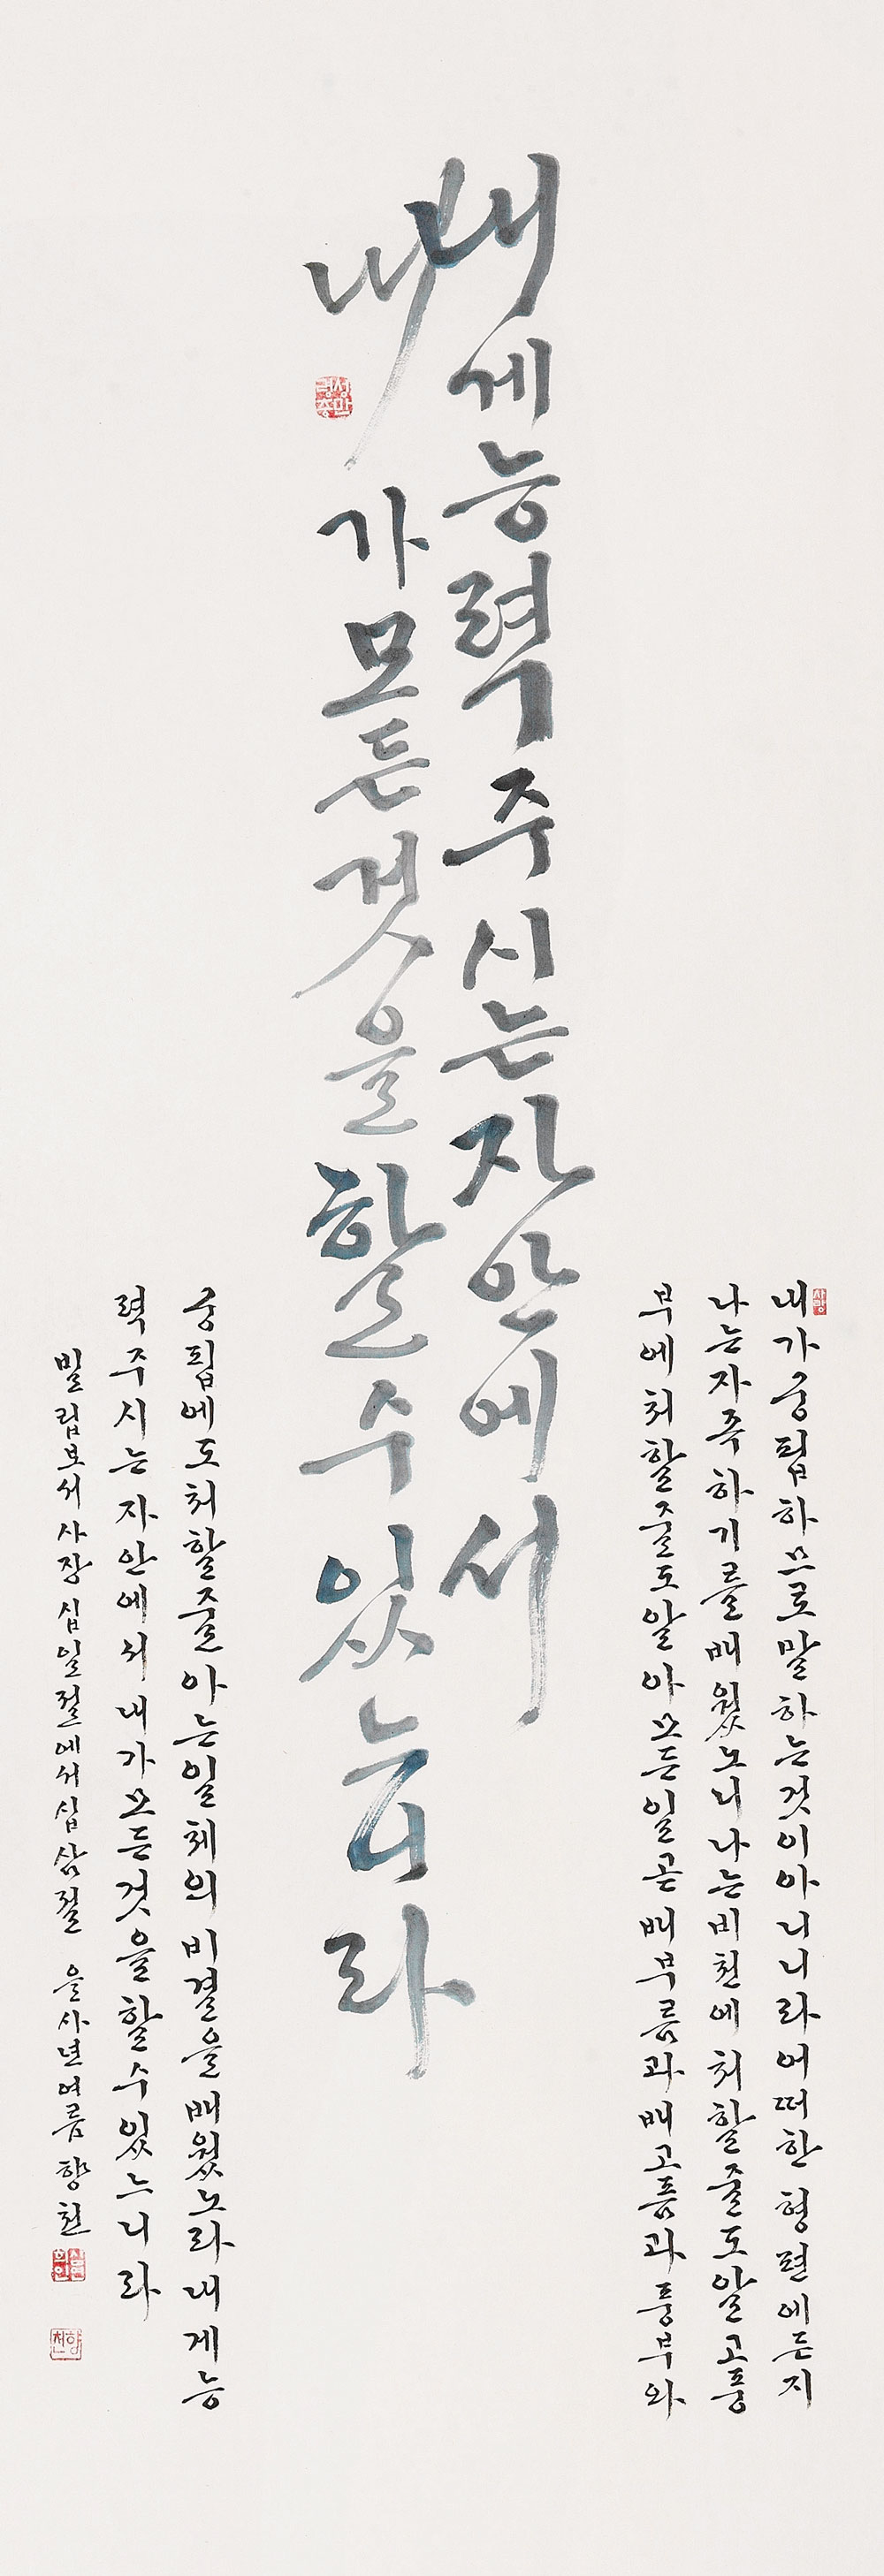 사랑
내가궁핍하므로말하는것이아니니라어떠한형편에든지
나는자족하기를배웠노니나는비천에처할줄도알고풍
부에처할줄도알아모든일곧배부름과배고픔과풍부와
내게능력주시는자안에서
내가모든것을할수있느니라
궁핍에도처할줄아는일체의비결을배웠노라내게능
력주시는자안에서내가모든것을할수있느니라
빌립보서사장십일절에서십삼절 을사년여름향천
향천